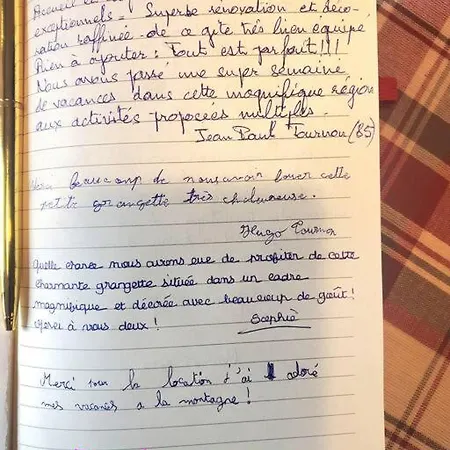 Accueil et
exceptionnels. Superbe rénovation et déco-
ration raffinée de ce gîte très bien équipé
Rien à ajouter : Tout est parfait !!!
Nous avons passé une super semaine
de vacances dans cette magnifique région
aux activités proposées multiples.
Jean Paul (85)
beaucoup de nous avoir louer cette
petite grangette très chaleureuse.
Hugo
Quelle chance nous avons eue de profiter de cette
charmante grangette située dans un cadre
magnifique et décorée avec beaucoup de goût !
Merci à vous deux !
Sophie
Merci pour la location j'ai adoré
mes vacances a la montagne !